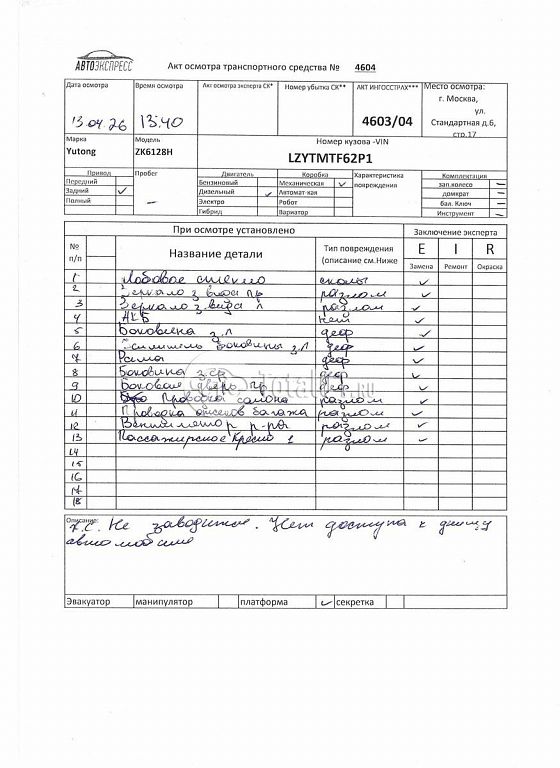 АВТОЭКСПРЕСС
Акт осмотра транспортного средства № 4604
Дата осмотра Время осмотра Акт осмотра эксперта СК* Номер убытка СК** АКТ ИНГОССТРАХ*** Место осмотра:
13.04.26 13:40 4603/04 г. Москва,
ул.
Стандартная д.6,
стр.17
Марка Модель Номер кузова -VIN
Yutong ZK6128H LZYTMTF62P1
Привод Пробег Двигатель Коробка Характеристика повреждения Комплектация
Передний Бензиновый Механическая ✓ зап.колесо —
Задний ✓ — Дизельный ✓ Автомат-кая домкрат —
Полный Электро Робот бал. Ключ —
Гибрид Вариатор Инструмент —
При осмотре установлено Заключение эксперта
№ п/п Название детали Тип повреждения (описание см.Ниже E I R
Замена Ремонт Окраска
1 Лобовое стекло сколы ✓
2 Зеркало з вида пр разлом ✓
3 Зеркало з.вида л разлом ✓
4 АКБ нет ✓
5 Боковина з.л деф ✓
6 Усилитель боковины з.л деф ✓
7 Рама деф ✓
8 Боковина з.ср деф ✓
9 Боковая дверь пр деф ✓
10 Проводка салона разлом ✓
11 Проводка отсеков багажа разлом ✓
12 Вентилятор р-ра разлом ✓
13 Пассажирское кресло 1 разлом ✓
14
15
16
17
18
Total01.ru
Описание: Т.С. Не заводится. Нет доступа к днищу
автомобиля
Эвакуатор манипулятор платформа ✓ секретка